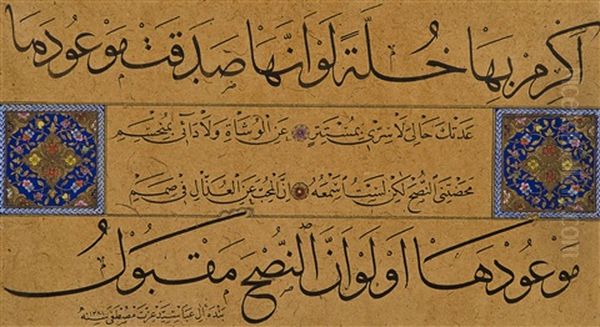 اكرم بها خلة لو انها صدقت موعودها
عدتك حالي لا سري بمستتر عن الوشاة ولا دائي بمنحسم
محضتني النصح لكن لست اسمعه ان المحب عن العذال في صمم
موعودها او لو ان النصح مقبول
بنده آل عبا سيد عزت مصطفى سنه